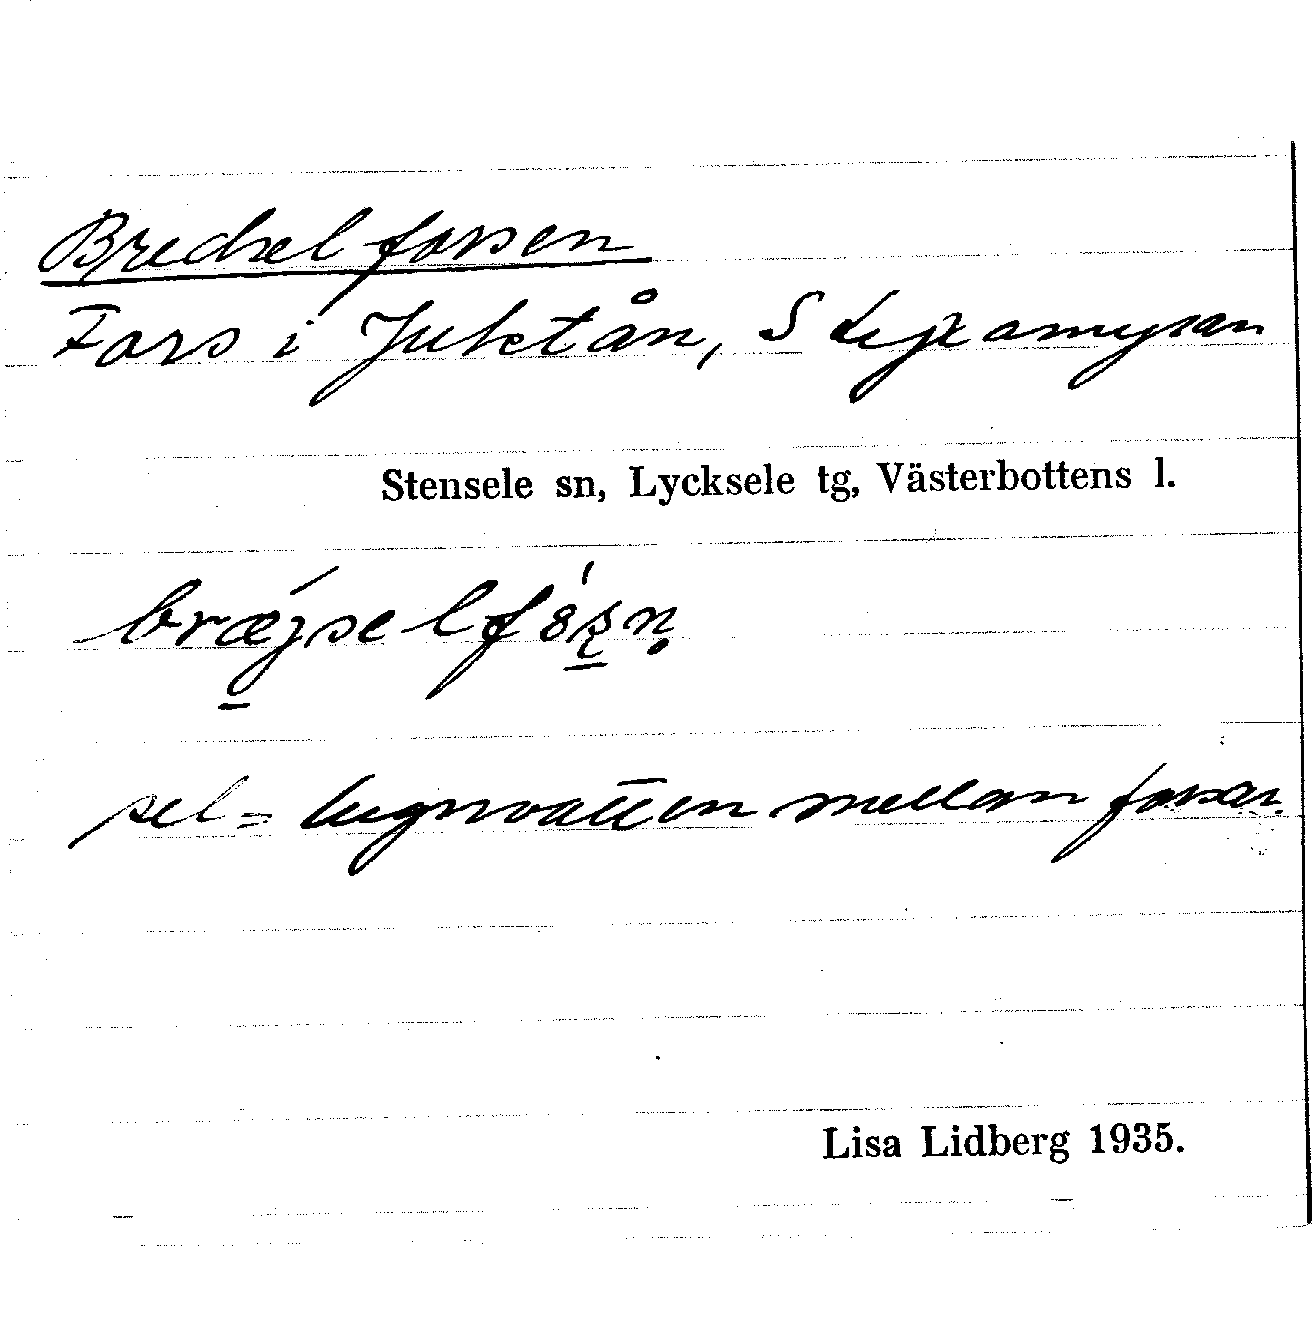 Bredselforsen
Fors i Juktån, S
Stensele sn, Lycksele tg, Västerbottens l.
bræ´jselfórsn
sel = lugnvatten mellan forsar.
Lisa Lidberg 1935.